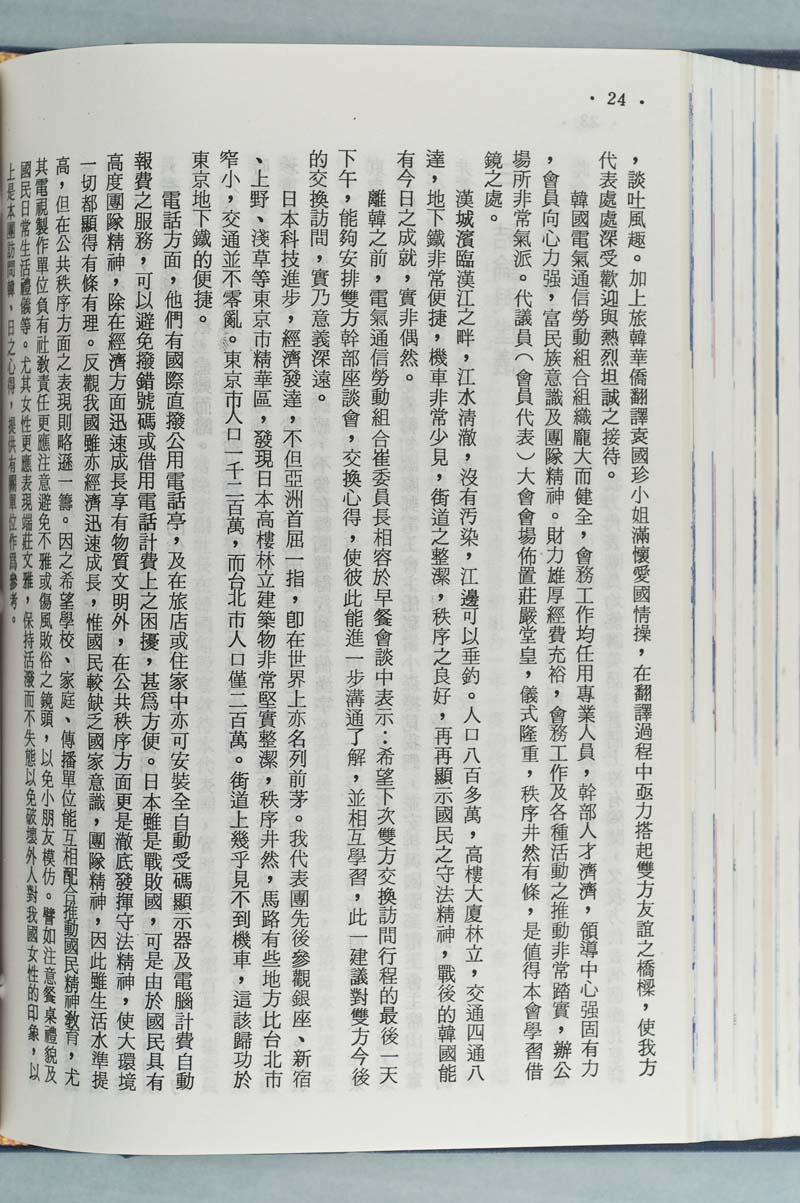 ·24·
，談吐風趣。加上旅韓華僑翻譯袁國珍小姐滿懷愛國情操，在翻譯過程中亟力搭起雙方友誼之橋樑，使我方
代表處處深受歡迎與熱烈坦誠之接待。
韓國電氣通信勞動組合組織龐大而健全，會務工作均任用專業人員，幹部人才濟濟，領導中心强固有力
，會員向心力强，富民族意識及團隊精神。財力雄厚經費充裕，會務工作及各種活動之推動非常踏實，辦公
場所非常氣派。代議員（會員代表）大會會場佈置莊嚴堂皇，儀式隆重，秩序井然有條，是值得本會學習借
鏡之處。
漢城濱臨漢江之畔，江水清澈，沒有污染，江邊可以垂釣。人口八百多萬，高樓大廈林立，交通四通八
達，地下鐵非常便捷，機車非常少見，街道之整潔，秩序之良好，再再顯示國民之守法精神，戰後的韓國能
有今日之成就，實非偶然。
離韓之前，電氣通信勞動組合崔委員長相容於早餐會談中表示：希望下次雙方交換訪問行程的最後一天
下午，能夠安排雙方幹部座談會，交換心得，使彼此能進一步溝通了解，並相互學習，此一建議對雙方今後
的交換訪問，實乃意義深遠。
日本科技進步，經濟發達，不但亞洲首屈一指，卽在世界上亦名列前茅。我代表團先後參觀銀座、新宿
、上野、淺草等東京市精華區，發現日本高樓林立建築物非常堅實整潔，秩序井然，馬路有些地方比台北市
窄小，交通並不零亂。東京市人口一千二百萬，而台北市人口僅二百萬。街道上幾乎見不到機車，這該歸功於
東京地下鐵的便捷。
電話方面，他們有國際直撥公用電話亭，及在旅店或住家中亦可安裝全自動受碼顯示器及電腦計費自動
報費之服務，可以避免撥錯號碼或借用電話計費上之困擾，甚爲方便。日本雖是戰敗國，可是由於國民具有
高度團隊精神，除在經濟方面迅速成長享有物質文明外，在公共秩序方面更是澈底發揮守法精神，使大環境
一切都顯得有條有理。反觀我國雖亦經濟迅速成長，惟國民較缺乏國家意識，團隊精神，因此雖生活水準提
高，但在公共秩序方面之表現則略遜一籌。因之希望學校、家庭、傳播單位能互相配合推動國民精神敎育，尤
其電視製作單位負有社敎責任更應注意避免不雅或傷風敗俗之鏡頭，以免小朋友模仿。譬如注意餐桌禮貌及
國民日常生活禮儀等。尤其女性更應表現端莊文雅，保持活潑而不失態以免破壞外人對我國女性的印象，以
上是本團訪問韓、日之心得，提供有關單位作爲參考。